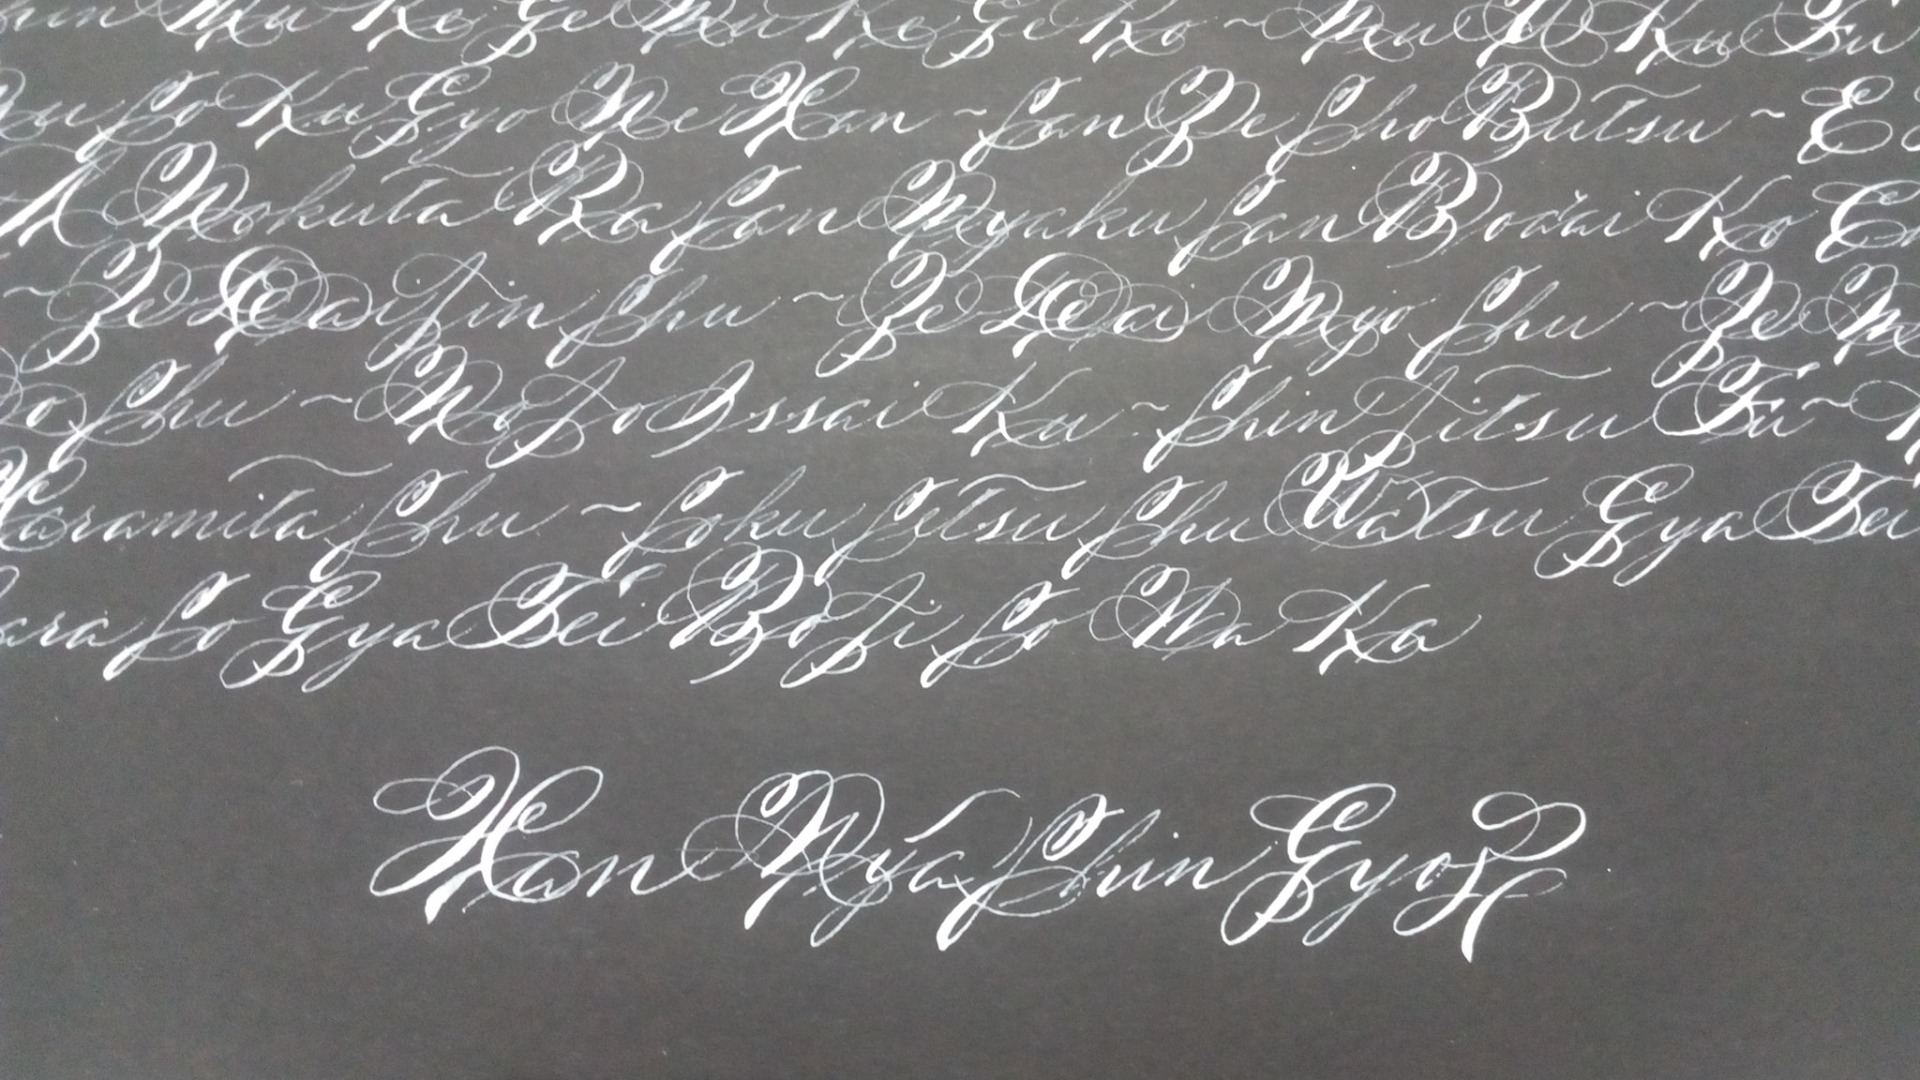 hin Mu Ke Ge Mu Ke Ge Ko ~ Mu U Ku Fu
So Ku Gyo Ne Han ~ San Ze Sho Butsu ~ E
A Nokuta Ra San Myaku San Bodai Ko
~ Ze Dai Jin Shu ~ Ze Dai Myo Shu ~ Ze M
o Shu ~ No Jo Issai Ku ~ Shin Jitsu Fu ~
Haramita Shu ~ Soku Setsu Shu Wa Tsu Gya Tei
ara So Gya Tei Bo Ji So Wa Ka
Han Nya Shin Gyo